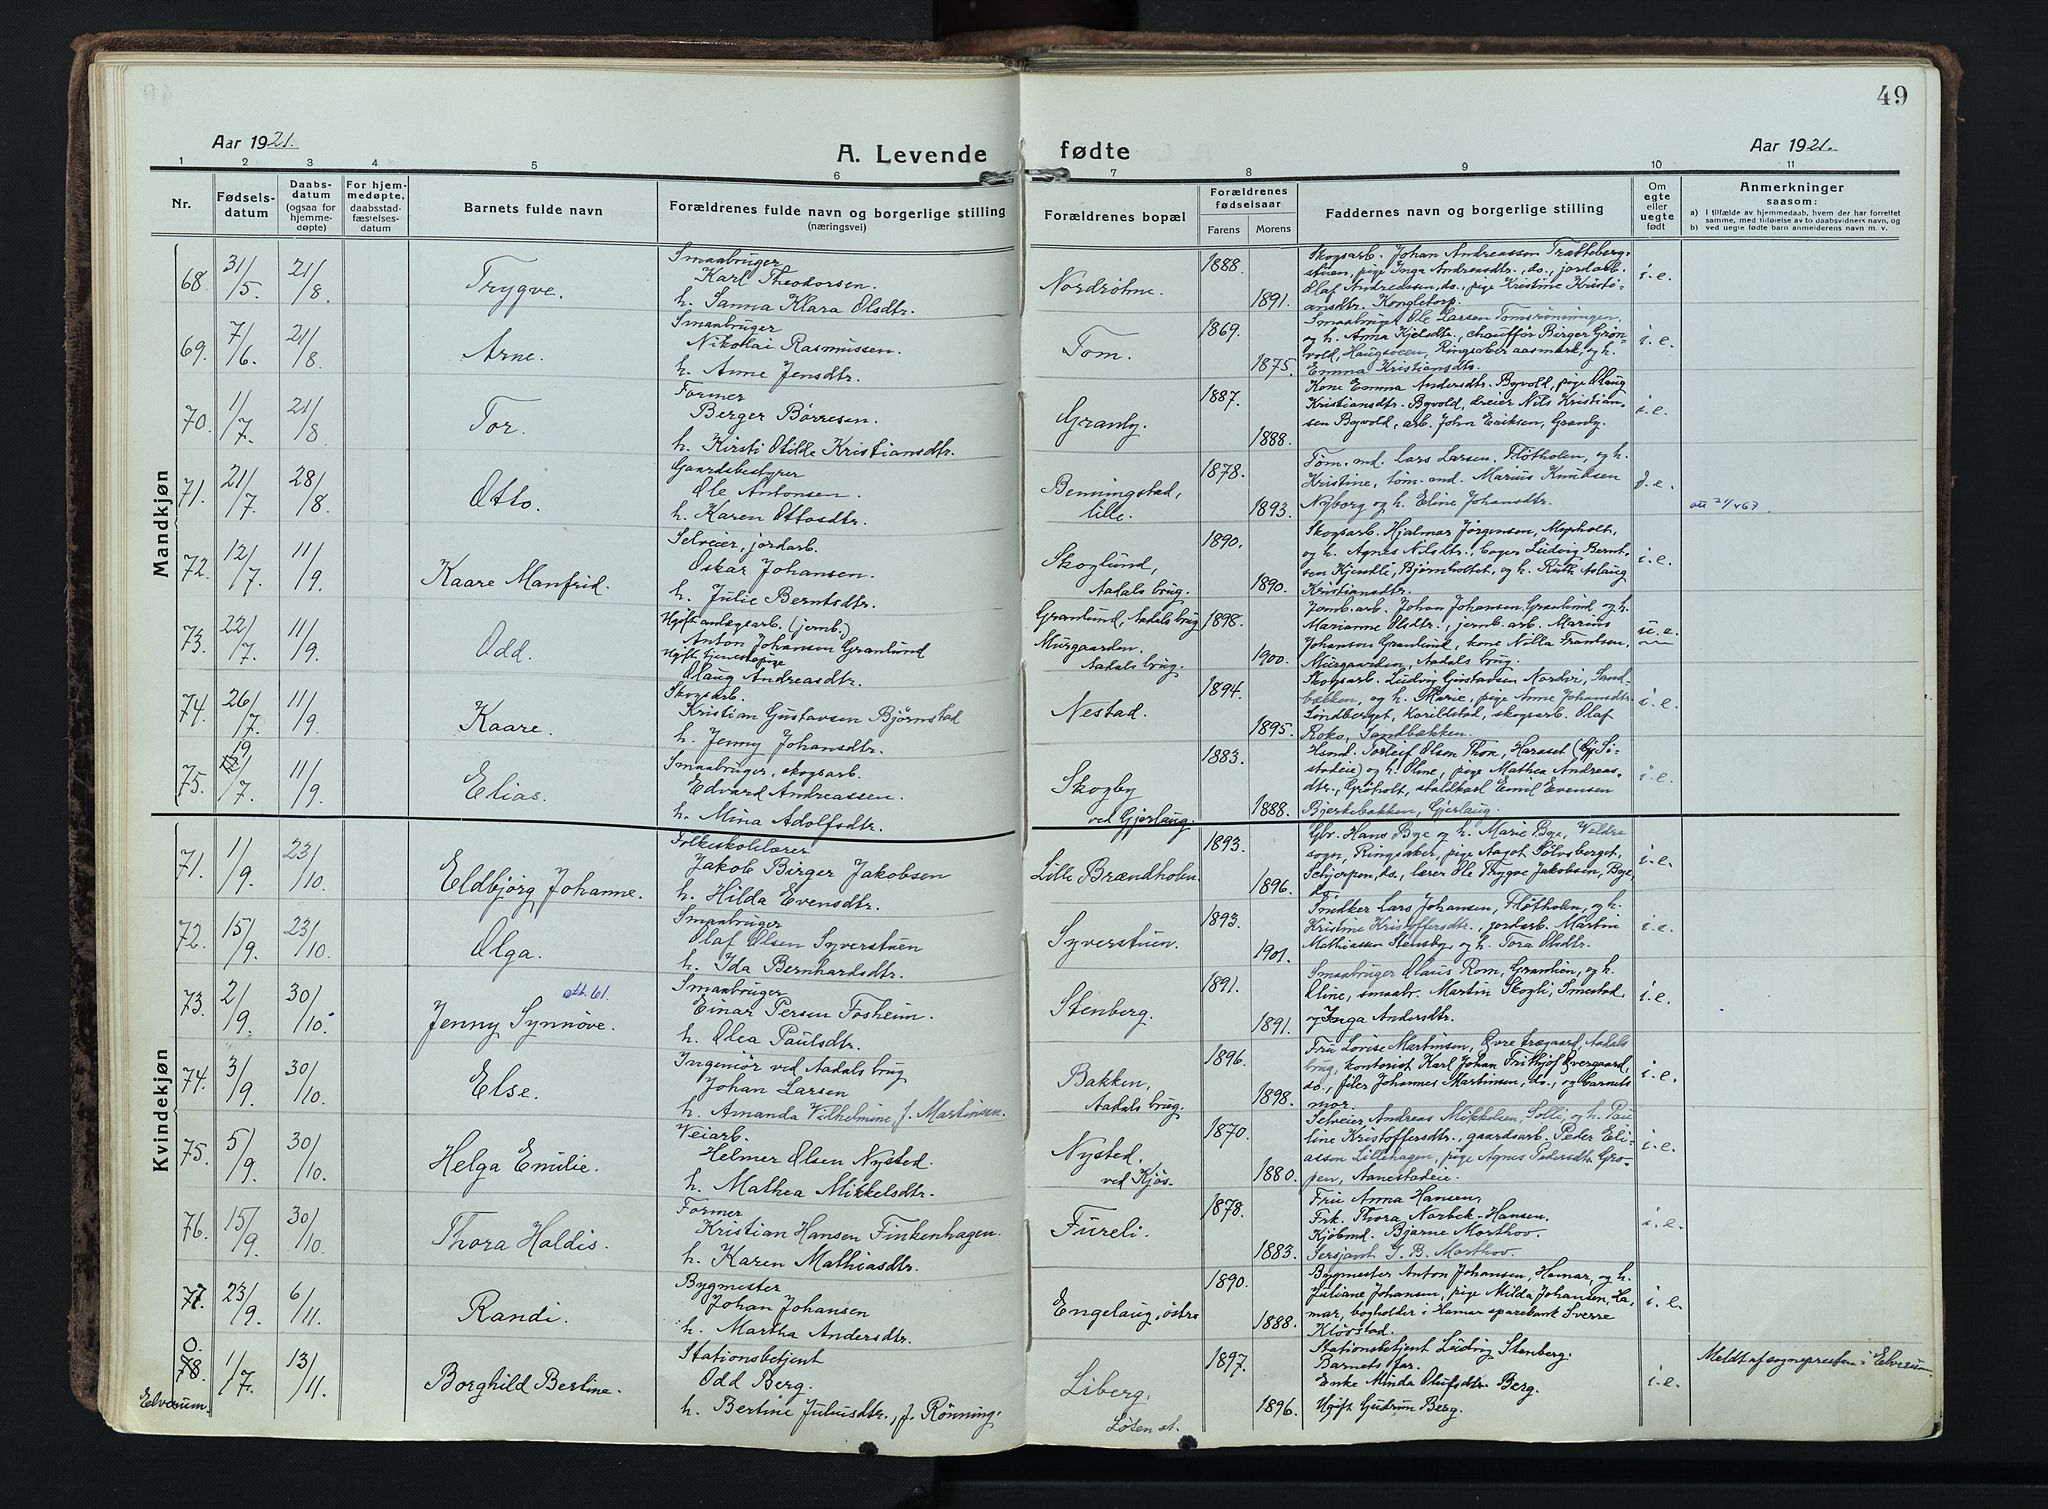 49
Aar 1921.
A. Levende fødte
Aar 1921.
1 2 3 4 5 6 7 8 9 10 11
Nr.
Fødsels-
datum
Daabs-
datum
(ogsaa for
hjemme-
døpte)
For hjem-
medøpte,
daabsstad-
fæstelses-
datum
Barnets fulde navn
Forældrenes fulde navn og borgerlige stilling
(næringsvei)
Forældrenes bopæl
Forældrenes
fødselsaar
Farens Morens
Faddernes navn og borgerlige stilling
Om
egte
eller
uegte
født
Anmerkninger
saasom:
a) I tilfælde av hjemmedaab, hvem der har forrettet
samme, med tilføielse av to daabsvidners navn, og
b) ved uegte fødte barn anmelderens navn m. v.
Mandkjøn
68. 31/5 21/8 Trygve.
Smaabruger
Karl Theodorsen.
h. Sanna Klara Olsdtr.
Nordrøhne.
1888. 1891.
Skogsarb. Johan Andreassen Trætteberg-
stuen, pige Inga Andreasdtr., do., jordarb.
Olaf Andreassen, do., pige Kristine Kristi-
ansdtr. Kongletorp.
i. e.
69. 7/6 21/8 Arne.
Smaabruger
Nikolai Rasmussen.
h. Anne Jensdtr.
Tom.
1869. 1875.
Smaabruger Ole Larsen Tomsrønningen,
og h. Anna Kjelsdtr., chauffør Birger Grøn-
vold, Haugsveen, Ringsaker aasmark, og h.
Emma Kristiansdtr.
i. e.
70. 1/7 21/8 Tor.
Former
Berger Børresen.
h. Kirsti Otilde Kristiansdtr.
Granly.
1887. 1888.
Kone Emma Andersdtr. Byvold, pige Olaug
Kristiansdtr. Byvold, dreier Nils Kristian-
sen Byvold, arb. John Eriksen, Granly.
i. e.
71. 21/7 28/8 Otto.
Gaardsbestyrer
Ole Antonsen.
h. Karen Ottosdtr.
Benningstad,
lille.
1878. 1893.
Tøm. md. Lars Larsen, Fløtholen, og h.
Kristine, tøm. md. Marius Knudsen
Nyborg og h. Eline Johansdtr.
72. 12/7 11/9 Kaare Manfrid.
Selveier, jordarb.
Oskar Johansen.
h. Julie Berntsdtr.
Skoglund,
Aadals brug.
1890. 1890.
Skogsarb. Hjalmar Jørgensen, Myrholt,
og h. Agnes Nilsdtr., bager Ludvig Bernt-
sen Kjendli, Bjørnholtet, og h. Ruth Aslaug
Kristiansdtr.
i. e.
73. 22/7 11/9 Odd.
Ugift anlægsarb. (jernb.)
Anton Johansen Granlund
Ugift tjenestepige
Olaug Andreasdtr.
Granlund, Aadals brug
Murgaarden.
Aadals brug.
1898. 1900.
Jernb. arb. Johan Johansen Granlund og h.
Marianne Olsdtr., jernb. arb. Marius
Johansen Granlund, kone Nilla Frantsen,
Murgaarden, Aadals brug.
u. e.
74. 26/7 11/9 Kaare.
Skogsarb.
Kristian Gustavsen Bjørnstad
h. Jenny Johansdtr.
Nestad.
1894. 1895.
Skogsarb. Ludvig Gustavsen Nordvi, Sand-
bækken, og h. Marie, pige Anne Johansdtr.
Lindberget, Korildstad, skogsarb. Olaf
Roko, Sandbækken.
i. e.
75. 19/7 11/9 Elias.
Smaabruger, skogsarb.
Edvard Andreassen.
h. Mina Adolfsdtr.
Skogby
ved Gjerlaug.
1883. 1888.
Torleif Olsen Thon, Haraset
og h. Oline, pige Mathea Andreas-
dtr., Grøholt, staldkarl Emil Evensen
Bjerkebakken, Gjerlaug.
i. e.
Kvindekjøn
71. 1/9 23/10 Eldbjørg Johanne.
Folkeskolelærer
Jakob Birger Jakobsen
h. Hilda Evensdtr.
Lille Brændholen.
1893. 1896.
Gbr. Hans Bye og h. Marie Bye, Veldre
sogn, Ringsaker, pige Aagot Sølvsberget,
Schjerpen, do., lærer Ole Trygve Jakobsen, Bye
do.
i. e.
72. 15/9 23/10 Olga.
Smaabruger
Olaf Olsen Syverstuen
h. Ida Bernhardsdtr.
Syverstuen.
1893. 1901.
Snedker Lars Johansen, Fløtholen, og h.
Kristine Kristoffersdtr., jordarb. Martin
Mathiassen Stensby, og h. Tora Olsdtr.
i. e.
73. 2/9 30/10 Jenny Synnöve.
att. 61.
Smaabruger
Einar Persen Fosheim.
h. Olea Paulsdtr.
Stenberg.
1891. 1891.
Smaabruger Olaus Rom, Granlien, og h.
Oline, smaabr. Martin Skogli, Imestad,
og Inga Andersdtr.
i. e.
74. 3/9 30/10 Else.
Ingeniør ved Aadals brug
Johan Larsen
h. Amanda Vilhelmine, f. Martinsen.
Bakken,
Aadals brug.
1896. 1898.
Fru Lovise Martinsen, Øvre trægaard, Aadals
brug, kontorist Karl Johan Frithjof Øvergaard,
do., filer Johannes Martinsen, do., og barnets
mor.
i. e.
75. 5/9 30/10 Helga Emilie.
Veiarb.
Helmer Olsen Nysted.
h. Mathea Mikkelsdtr.
Nysted,
ved Kjøs.
1870. 1880.
Selveier Andreas Mikkelsen, Solli, og h. Pau-
line Kristoffersdtr., gaardsarb. Peder Eli-
assen Lillehagen, pige Agnes Pedersdtr. Gro-
pen, Aanestadeie.
i. e.
76. 15/9 30/10 Thora Haldis.
Former
Kristian Hansen Finkenhagen.
h. Karen Mathiasdtr.
Fureli.
1878. 1883.
Fru Anna Hansen,
Frk. Thora Norbek-Hansen.
Kjøbmd. Bjarne Morthov.
Sersjant G. B. Morthov.
i. e.
77. 23/9 6/11 Randi.
Bygmester
Johan Johansen
h. Martha Andersdtr.
Engelaug, østre
1890. 1888.
Bygmester Anton Johansen, Hamar, og h.
Juliane Johansen, pige Milda Johansen, Ha-
mar, bogholder i Hamar sparebank Sverre
Kløvstad.
i. e.
0.
78. 1/7 13/11 Borghild Bertine.
Elverum.
Stationsbetjent
Odd Berg.
h. Bertine Juliusdtr., f. Rønning.
Liberg,
Løten st.
1897. 1896.
Stationsbetjent Ludvig Stenberg.
Barnets far.
Enke Minda Olufsdtr. Berg.
Ugift Gudrun Berg.
i. e.
Meldt af sognepresten i Elverum